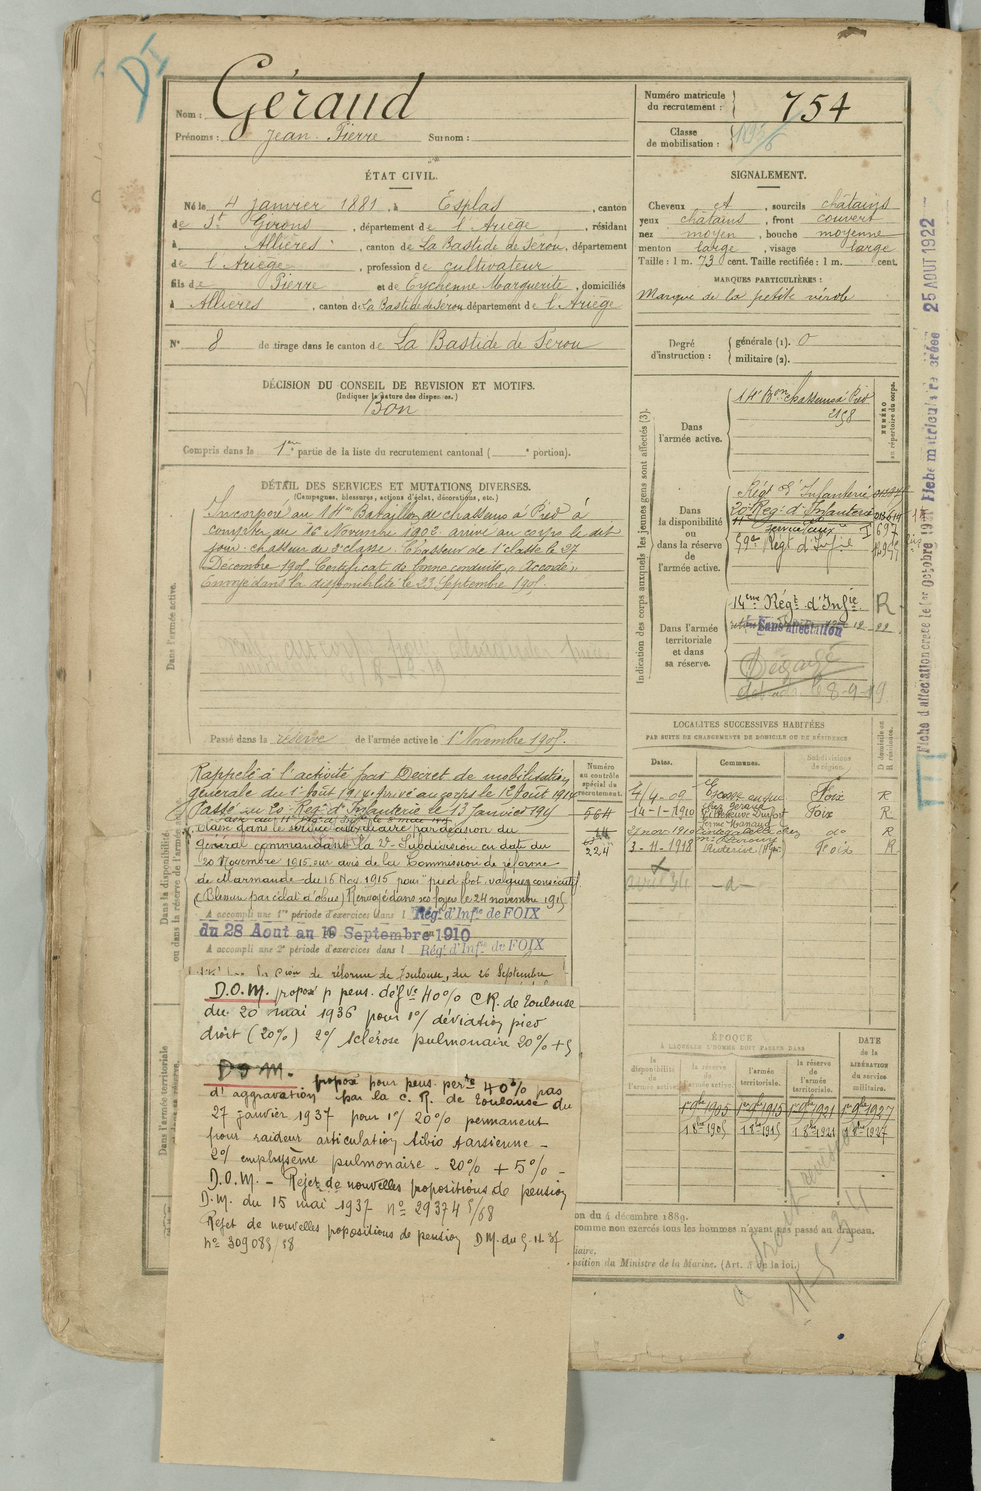 Nom : Géraud
Prénoms : Jean Pierre Surnom :
Numéro matricule du recrutement : 754
Classe de mobilisation :
ÉTAT CIVIL.
Né le 4 janvier 1881, à Esplas, canton
de St Girons, département de l'Ariège, résidant
à Allières, canton de La Bastide de Sérou, département
de l'Ariège, profession de cultivateur
fils de Pierre et de Eychenne Marguerite, domiciliés
à Allières, canton de La Bastide de Serou département de l'Ariège
N° 8 de tirage dans le canton de La Bastide de Serou
SIGNALEMENT.
Cheveux et, sourcils châtains
yeux châtains, front couvert
nez moyen, bouche moyenne
menton large, visage large
Taille : 1 m. 73 cent. Taille rectifiée : 1 m. cent.
MARQUES PARTICULIÈRES :
Marque de la petite vérole
Degré d'instruction : générale (1). 0
militaire (2).
DÉCISION DU CONSEIL DE REVISION ET MOTIFS.
(Indiquer la nature des dispenses.)
Bon
Compris dans la 1ère partie de la liste du recrutement cantonal ( e portion).
DÉTAIL DES SERVICES ET MUTATIONS DIVERSES.
(Campagnes, blessures, actions d'éclat, décorations, etc.)
Dans l'armée active.
Incorporé au 14me Bataillon de chasseurs à Pied à
compter du 16 Novembre 1902 arrivé au corps le dit
jour. chasseur de 2e classe. Chasseur de 1e classe le 27
Décembre 1905 Certificat de bonne conduite "Accordé"
Envoyé dans la disponibilité le 23 Septembre 1905.
Passé dans la réserve de l'armée active le 1er Novembre 1905.
Indication des corps auxquels les jeunes gens sont affectés (3).
Dans l'armée active.
14e Bon Chasseurs à Pied
2158
NUMÉRO au répertoire du corps.
Dans la disponibilité ou dans la réserve de l'armée active.
Régt d'Infanterie
20e Reg. d'Infanterie
59e Regt d'Infie
Dans l'armée territoriale et dans sa réserve.
14eme Régt d'Infie R
Sans affectation
Dégagé
8-9-19
Fiche d'affectation créée le 1er Octobre 1931
Fiche matriculaire créée 25 AOUT 1922
LOCALITÉS SUCCESSIVES HABITÉES
PAR SUITE DE CHANGEMENTS DE DOMICILE OU DE RÉSIDENCE
Dates. Communes. Subdivisions de région. D domicile ou R résidence.
4-09 Foix R
14-1-1910 Foix R
nov 1910 do R
3-11-1918 Foix R
Dans la disponibilité ou dans la réserve de l'armée active
Numéro au contrôle spécial du recrutement.
564
224
Rappelé à l'activité par Décret de mobilisation
générale du 1er Août 1914. Arrivé au corps le 12 Août 1914
Passé au 20e Regt d'Infanterie le 13 Janvier 1915
Classé dans le service auxiliaire par décision du
général commandant la 2e Subdivision en date du
20 Novembre 1915 sur avis de la Commission de réforme
de Marmande du 15 Nov. 1915 pour "pied bot valgus consécutif
(Blessure par éclat d'obus) Renvoyé dans ses foyers le 24 novembre 1915
A accompli une 1re période d'exercices dans l Régt d'Infie de FOIX
du 28 Aout au 19 Septembre 1910
A accompli une 2e période d'exercices dans l Régt d'Infie de FOIX
de réforme de Toulouse, du 26 Septembre
D.O.M. proposé p pens. défve 40% C.R. de Toulouse
du 20 mai 1936 pour 1°/ déviation pied
droit (20%) 2°/ Sclérose pulmonaire 20% + 5
D.O.M. proposé pour pens. perte 40% pas
d'aggravation par la C.R. de Toulouse du
27 janvier 1937 pour 1°/ 20% permanent
pour raideur articulation tibio tarsienne -
2°/ emphysème pulmonaire - 20% + 5% -
D.O.M. - Rejet de nouvelles propositions de pension
D.M. du 15 mai 1937 n° 29374 5/68
Rejet de nouvelles propositions de pension D.M. du 5.11.37
n° 309085/18
Dans l'armée territoriale
ÉPOQUE
À LAQUELLE L'HOMME DOIT PASSER DANS
la disponibilité de l'armée active. la réserve de l'armée active. l'armée territoriale. la réserve de l'armée territoriale.
DATE de la LIBÉRATION du service militaire.
1er 9bre 1905 1er 9bre 1915 1er 9bre 1921 1er 9bre 1927
1 8bre 1905 1 8bre 1915 1 8bre 1921 1 8bre 1927
on du 4 décembre 1889.
comme non exercés tous les hommes n'ayant pas passé au drapeau.
iaire.
position du Ministre de la Marine. (Art. 4 de la loi.)